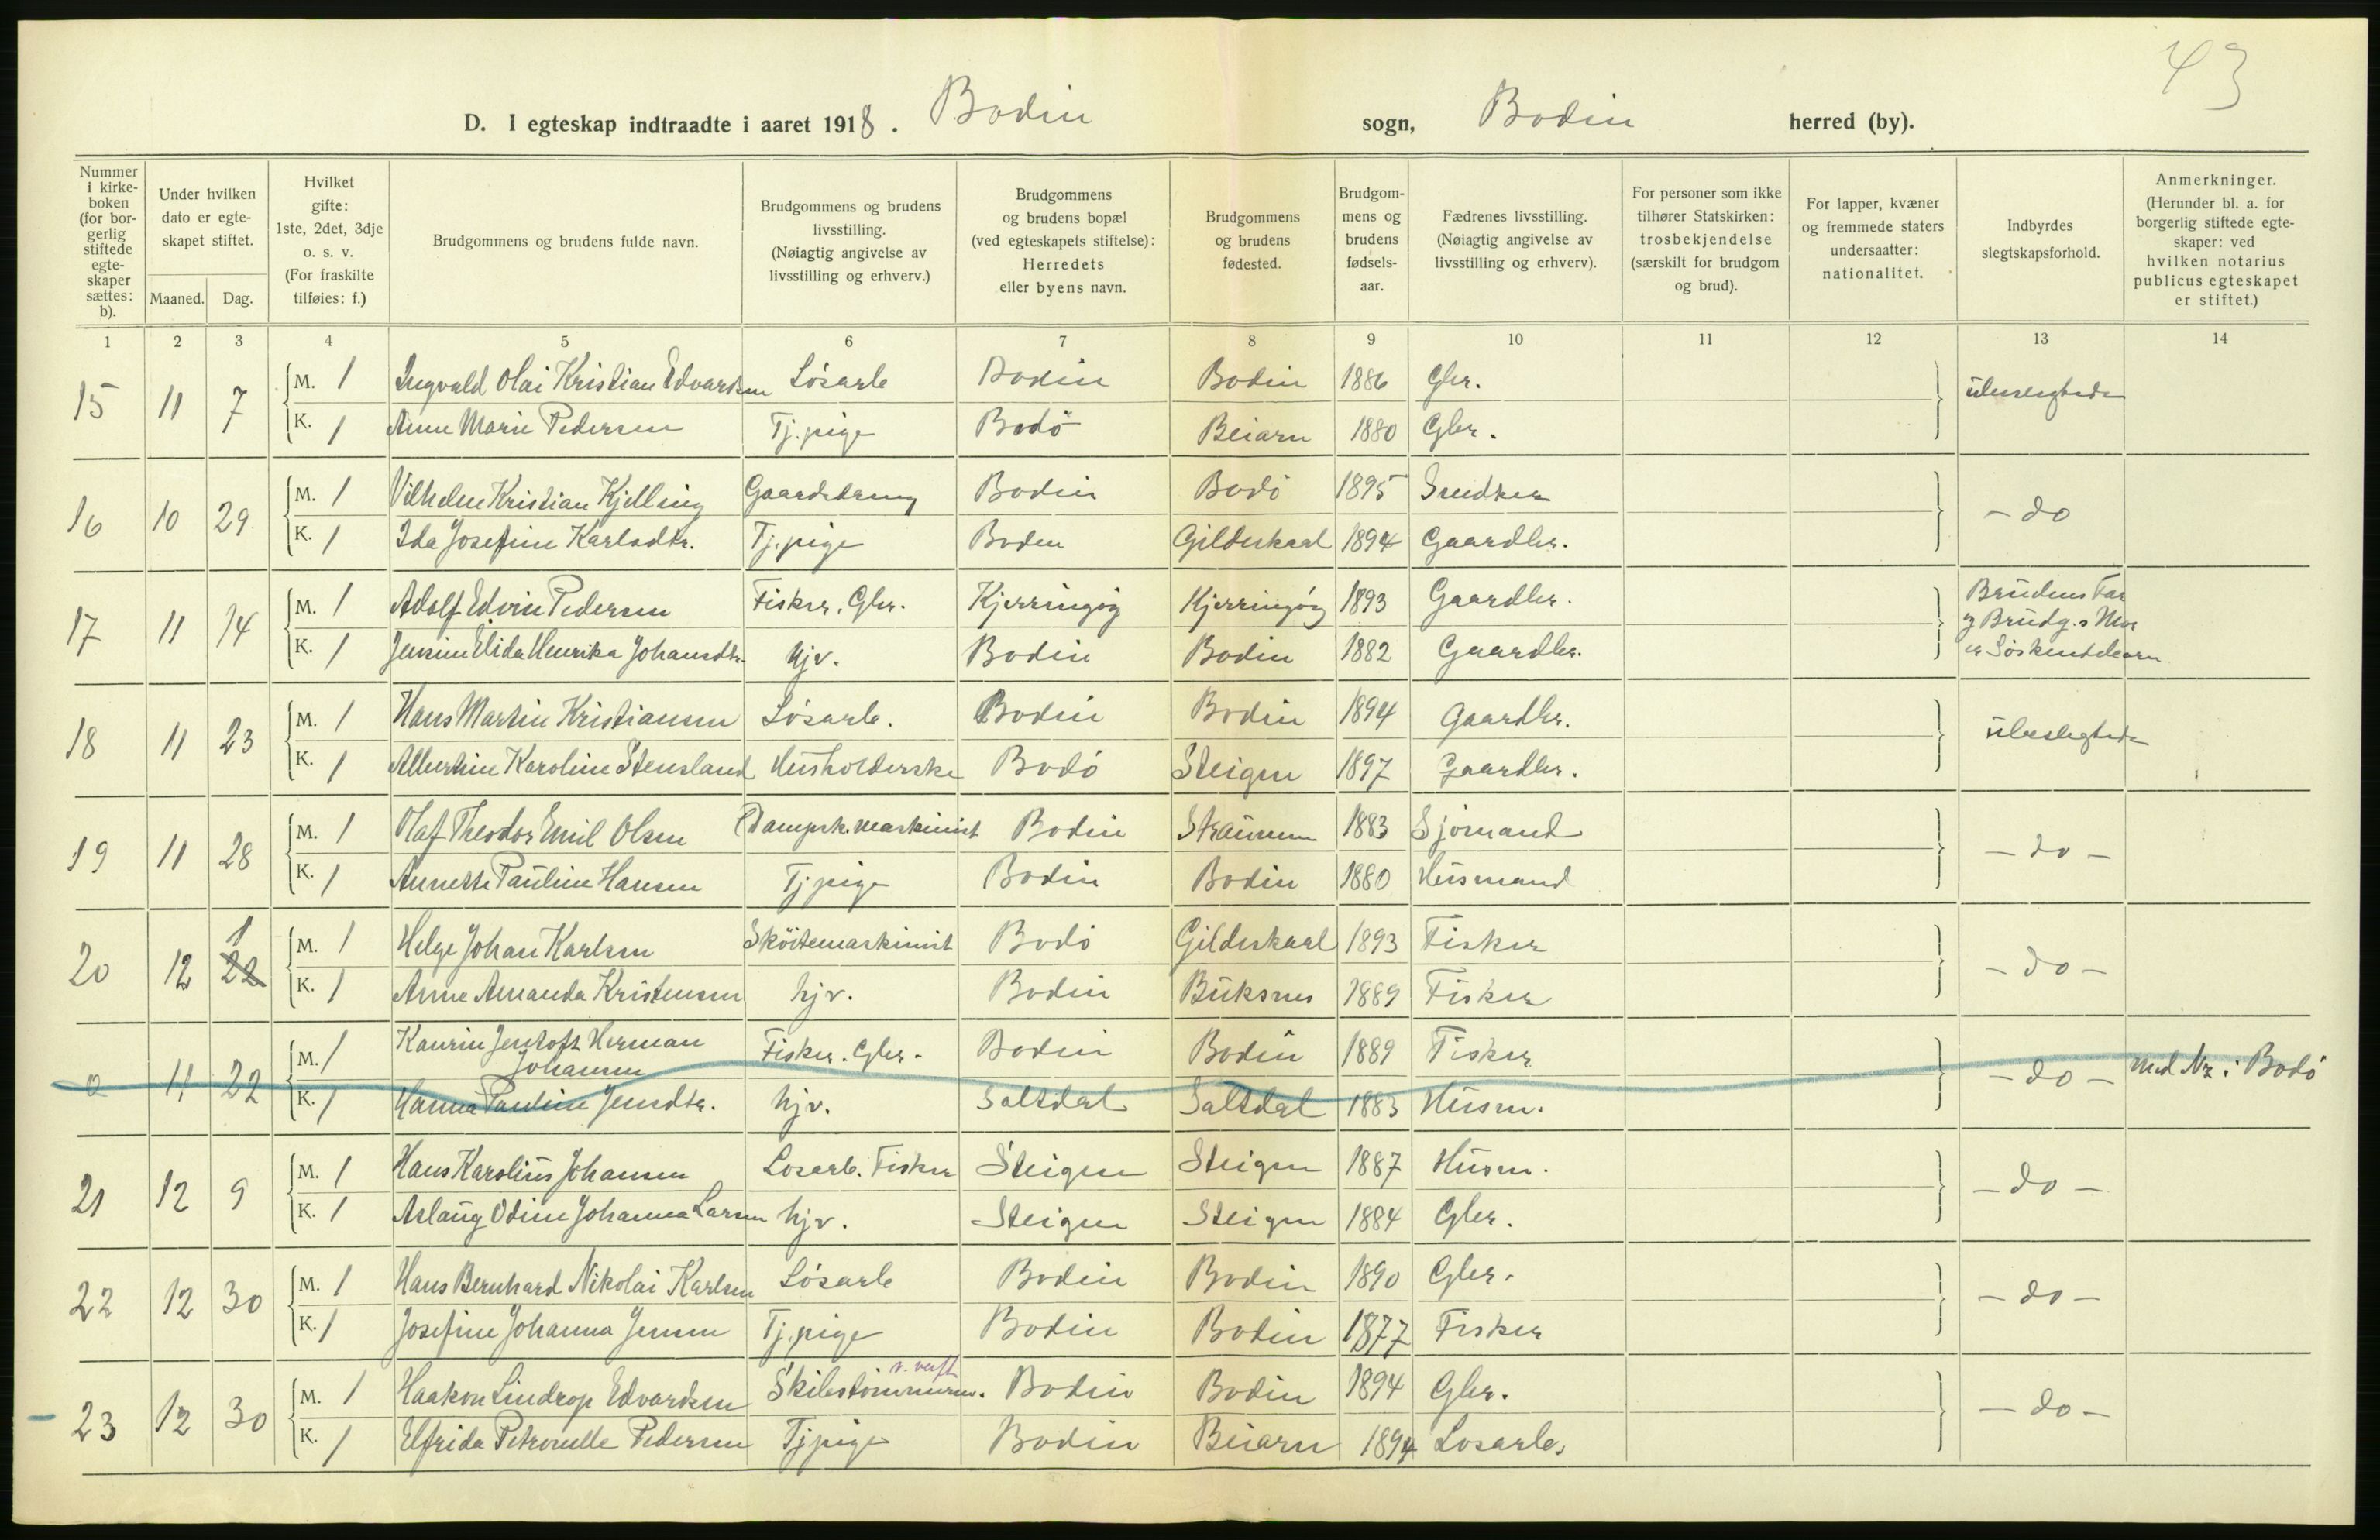 43
D. I egteskap indtraadte i aaret 1918. Bodin sogn, Bodin herred (by).
Nummer i kirke-boken (for bor-gerlig stiftede egte-skaper sættes: b).
Under hvilken dato er egte-skapet stiftet.
Maaned. Dag.
Hvilket gifte: 1ste, 2det, 3dje o. s. v. (For fraskilte tilføies: f.)
Brudgommens og brudens fulde navn.
Brudgommens og brudens livsstilling. (Nøiagtig angivelse av livsstilling og erhverv.)
Brudgommens og brudens bopæl (ved egteskapets stiftelse): Herredets eller byens navn.
Brudgommens og brudens fødested.
Brudgom-mens og brudens fødsels-aar.
Fædrenes livsstilling. (Nøiagtig angivelse av livsstilling og erhverv).
For personer som ikke tilhører Statskirken: trosbekjendelse (særskilt for brudgom og brud).
For lapper, kvæner og fremmede staters undersaatter: nationalitet.
Indbyrdes slegtskapsforhold.
Anmerkninger. (Herunder bl. a. for borgerlig stiftede egte-skaper: ved hvilken notarius publicus egteskapet er stiftet.)
1 2 3 4 5 6 7 8 9 10 11 12 13 14
15 11 7 M. 1 Ingvald Olai Kristian Edvardsen Løsarb Bodin Bodin 1886 Gbr. ubeslegtede
K. 1 Anne Marie Pedersen Tj.pige Bodö Beiarn 1880 Gbr.
16 10 29 M. 1 Vilhelm Kristian Kjelling Gaardsdreng Bodin Bodö 1895 Snedker - do
K. 1 Ida Josefine Karlsdtr. Tj.pige Boden Gildeskaal 1894 Gaardbr.
17 11 14 M. 1 Adolf Edvin Pedersen Fisker. Gbr. Kjerringöy Kjerringöy 1893 Gaardbr. Brudens Far
og Brudg.s Mor
er Söskendebarn
K. 1 Jensine Elida Henrika Johansdtr. hjv. Bodin Bodin 1882 Gaardbr.
18 11 23 M. 1 Hans Martin Kristiansen Løsarb. Bodin Bodin 1894 Gaardbr. ubeslegtede
K. 1 Albertine Karoline Stensland Husholderske Bodö Steigen 1897 Gaardbr.
19 11 28 M. 1 Olaf Theodor Emil Olsen Dampsk.maskinist Bodin 1883 Sjömand - do -
K. 1 Annette Pauline Hansen Tjpige Bodin Bodin 1880 Husmand
20 12 1 22 M. 1 Helge Johan Karlsen Sköitemaskinist Bodö Gildeskaal 1893 Fisker - do -
K. 1 Anne Amanda Kristensen hjv. Bodin Buksnes 1889 Fisker
0 11 22 M. 1 Kaurin Jentoft Herman
Johansen Fisker. Gbr. Bodin Bodin 1889 Fisker - do - Med Nr. i Bodö
K. 1 Hanna Pauline Jensdtr. hjv. Saltdal Saltdal 1883 Husm.
21 12 9 M. 1 Hans Karolius Johansen Losarb. Fisker Steigen Steigen 1887 Husm. - do -
K. 1 Aslaug Odine Johanna Larsen hjv. Steigen Steigen 1884 Gbr.
22 12 30 M. 1 Hans Bernhard Nikolai Karlsen Løsarb Bodin Bodin 1890 Gbr. - do -
K. 1 Josefine Johanna Jensen Tj.pige Bodin Bodin 1877 Fisker
23 12 30 M. 1 Haakon Lindrop Edvardsen Skibstömmerm. v. verft Bodin Bodin 1894 Gbr. - do -
K. 1 Elfrida Petronelle Pedersen Tjpige Bodin Beiarn 1894 Losarb.